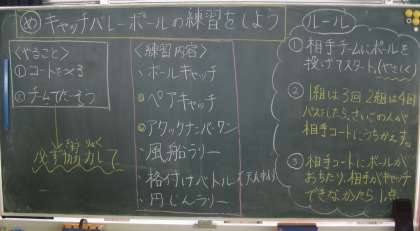 め キャッチバレーボールの練習をしよう
<やること>
①コートをつくる
②チームで
必ず協力して
きょう りょく
<練習内容>
・ボールキャッチ
◎ペアキャッチ
◎アタックナンバーワン
・風船ラリー
・格付けバトル
・円じんラリー
ルール
① 相手チームにボールを
投げてスタート。(やさしく)
② 1組は3回 2組は4回
パスをしたら、さいごの人が
相手コートにうちかえす。
③ 相手コートにボールが
おちたり、相手がキャッチ
できなかったら1点